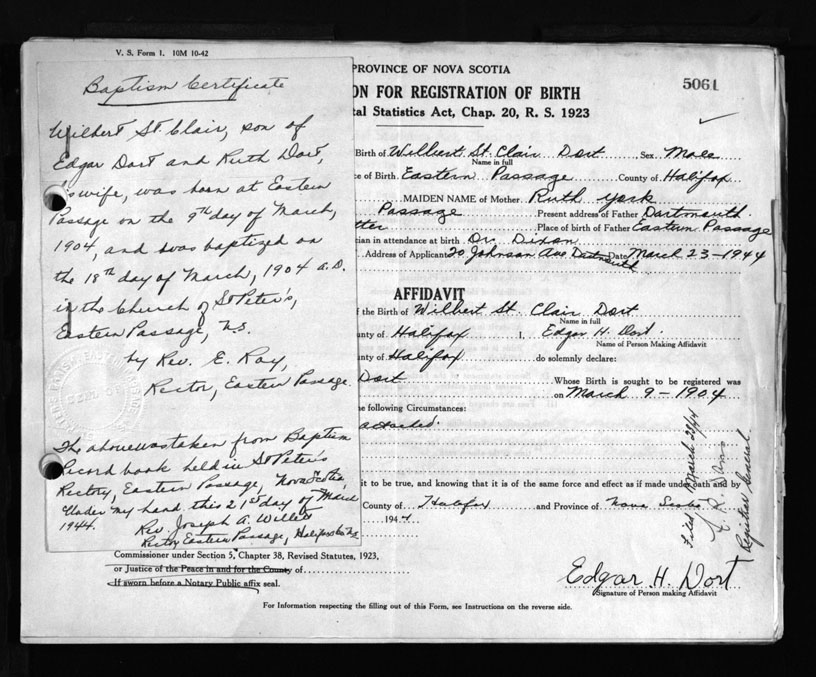 V. S. Form 1. 10M 10-42
Baptism Certificate
Wilbert St. Clair, son of
Edgar Dort and Ruth Dort,
his wife, was born at Eastern
Passage on the 9th day of March,
1904, and was baptized on
the 18th day of March, 1904 A.D.
in the Church of St Peter's,
Eastern Passage, N.S.
by Rev. E. Roy,
Rector, Eastern Passage.
The above was taken from Baptism
Record book held in St Peter's
Rectory, Eastern Passage, Nova Scotia,
Under my hand this 21st day of March
1944.
Rev. Joseph A. Willett
Rector, Eastern Passage, Halifax Co. N.S.
PROVINCE OF NOVA SCOTIA
5061
ON FOR REGISTRATION OF BIRTH
tal Statistics Act, Chap. 20, R. S. 1923
Birth of Wilbert St. Clair Dort Sex Male
Name in full
ce of Birth Eastern Passage County of Halifax
MAIDEN NAME of Mother Ruth York
Passage Present address of Father Dartmouth
tter Place of birth of Father Eastern Passage
cian in attendance at birth Dr. Dixon
Address of Applicant 20 Johnson Ave Dartmouth Date March 23-1944
AFFIDAVIT
f the Birth of Wilbert St. Clair Dort
Name in full
unty of Halifax I, Edgar H. Dort.
Name of Person Making Affidavit
unty of Halifax do solemnly declare:
Dort Whose Birth is sought to be registered was
on March 9-1904
e following Circumstances:
attached.
it to be true, and knowing that it is of the same force and effect as if made under oath and by
County of Halifax and Province of Nova Scotia
194
Filed March 28/44
Registrar General
Commissioner under Section 5, Chapter 38, Revised Statutes, 1923,
or Justice of the Peace in and for the County of
If sworn before a Notary Public affix seal.
Edgar H. Dort
Signature of Person making Affidavit
For Information respecting the filling out of this Form, see Instructions on the reverse side.